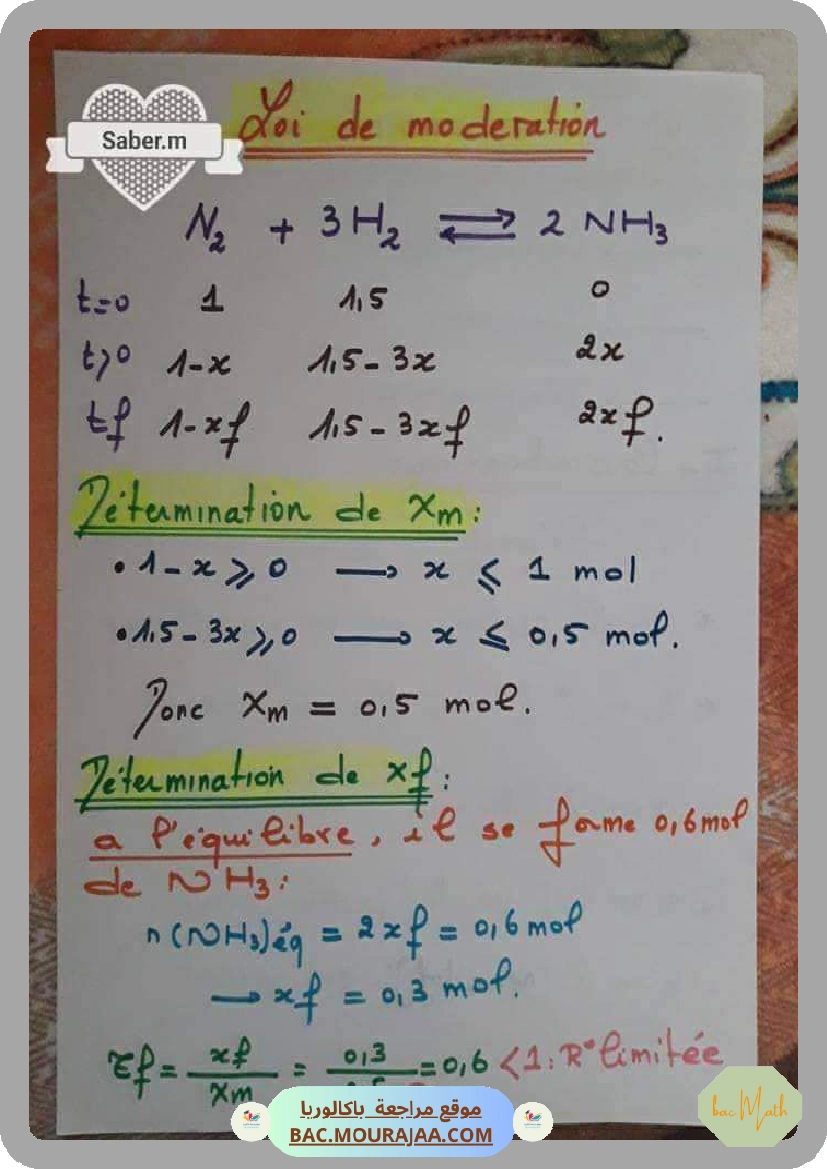 Saber.m
Loi de moderation
N₂ + 3H₂ ⇌ 2 NH₃
t=0 1 1,5 0
t>0 1-x 1,5-3x 2x
tf 1-xf 1,5-3xf 2xf.
Détermination de Xm:
• 1-x ⩾ 0 → x ⩽ 1 mol
• 1,5-3x ⩾ 0 → x ⩽ 0,5 mol.
Donc Xm = 0,5 mol.
Détermination de xf:
a l'équilibre, il se forme 0,6 mol
de NH₃:
n(NH₃)éq = 2xf = 0,6 mol
→ xf = 0,3 mol.
τf = xf/Xm = 0,3/0,5 = 0,6 < 1: R° limitée
موقع مراجعة باكالوريا
BAC.MOURAJAA.COM
bac Math